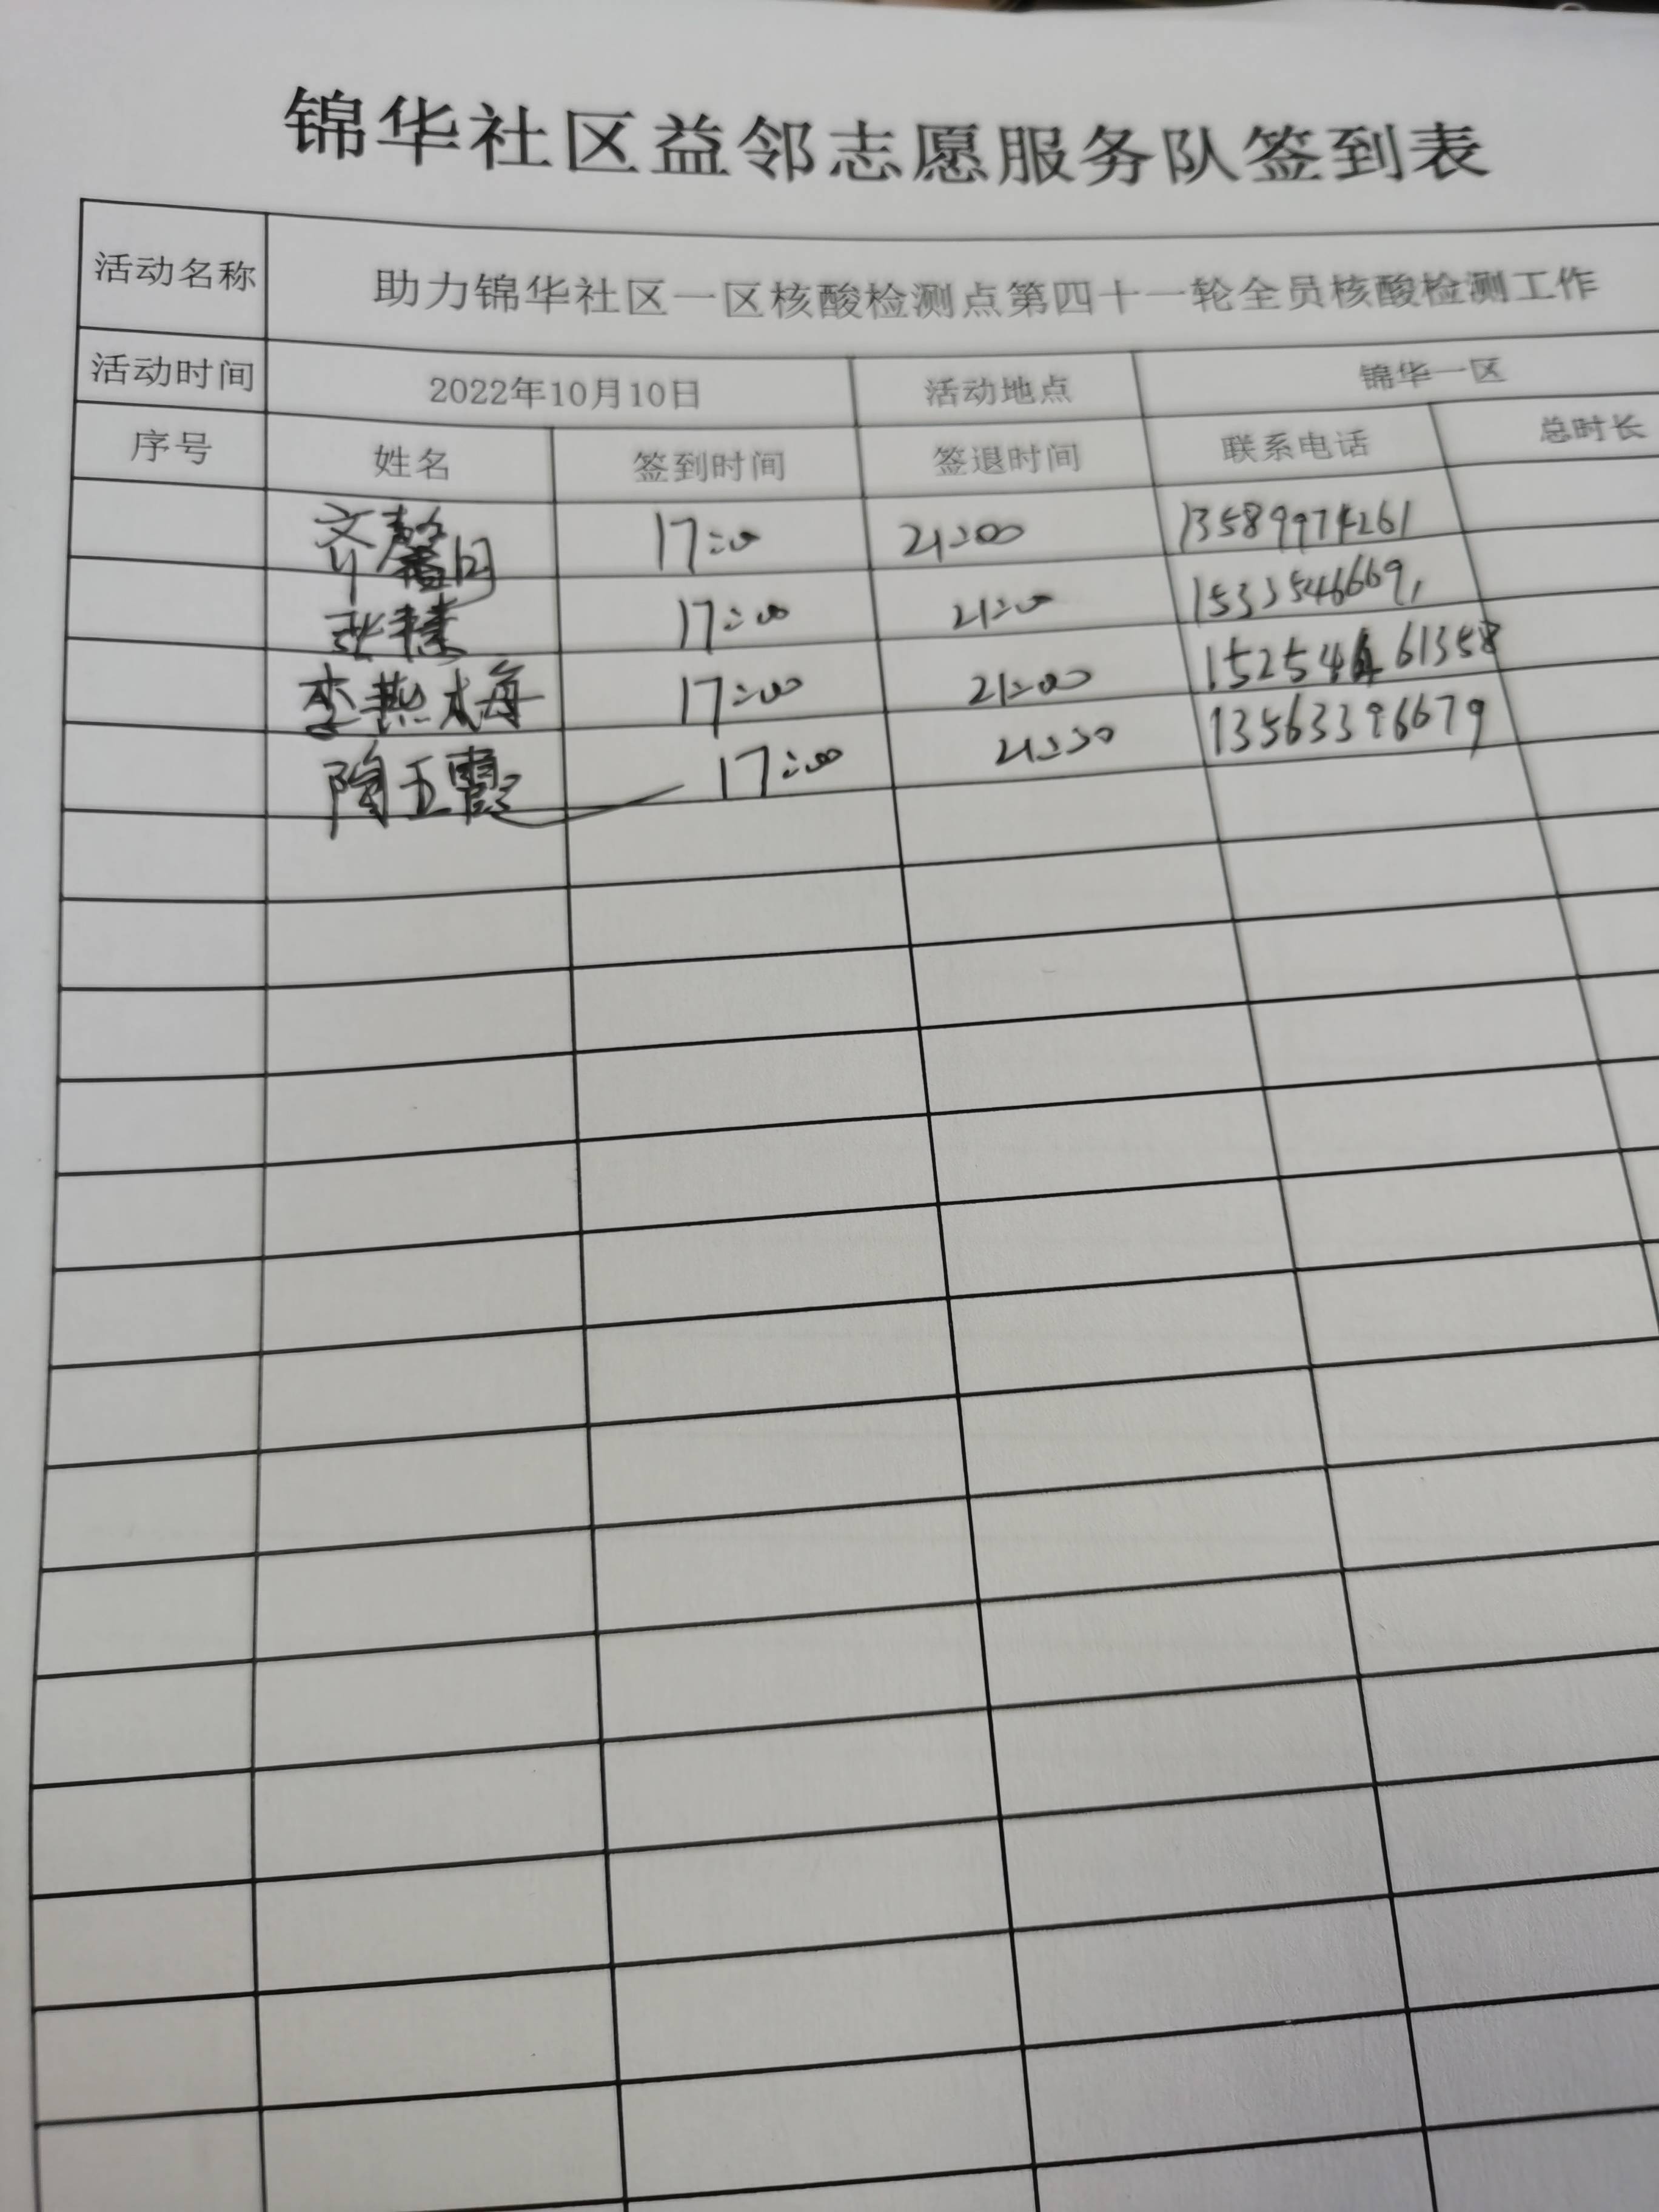 锦华社区益邻志愿服务队签到表
活动名称 助力锦华社区一区核酸检测点第四十一轮全员核酸检测工作
活动时间 2022年10月10日 活动地点 锦华一区
序号 姓名 签到时间 签退时间 联系电话 总时长
齐馨 17:00 21:00 13589974261
张 17:00 21:00
李燕梅 17:00 21:00 61358
陶玉霞 17:00 21:30 13563396679